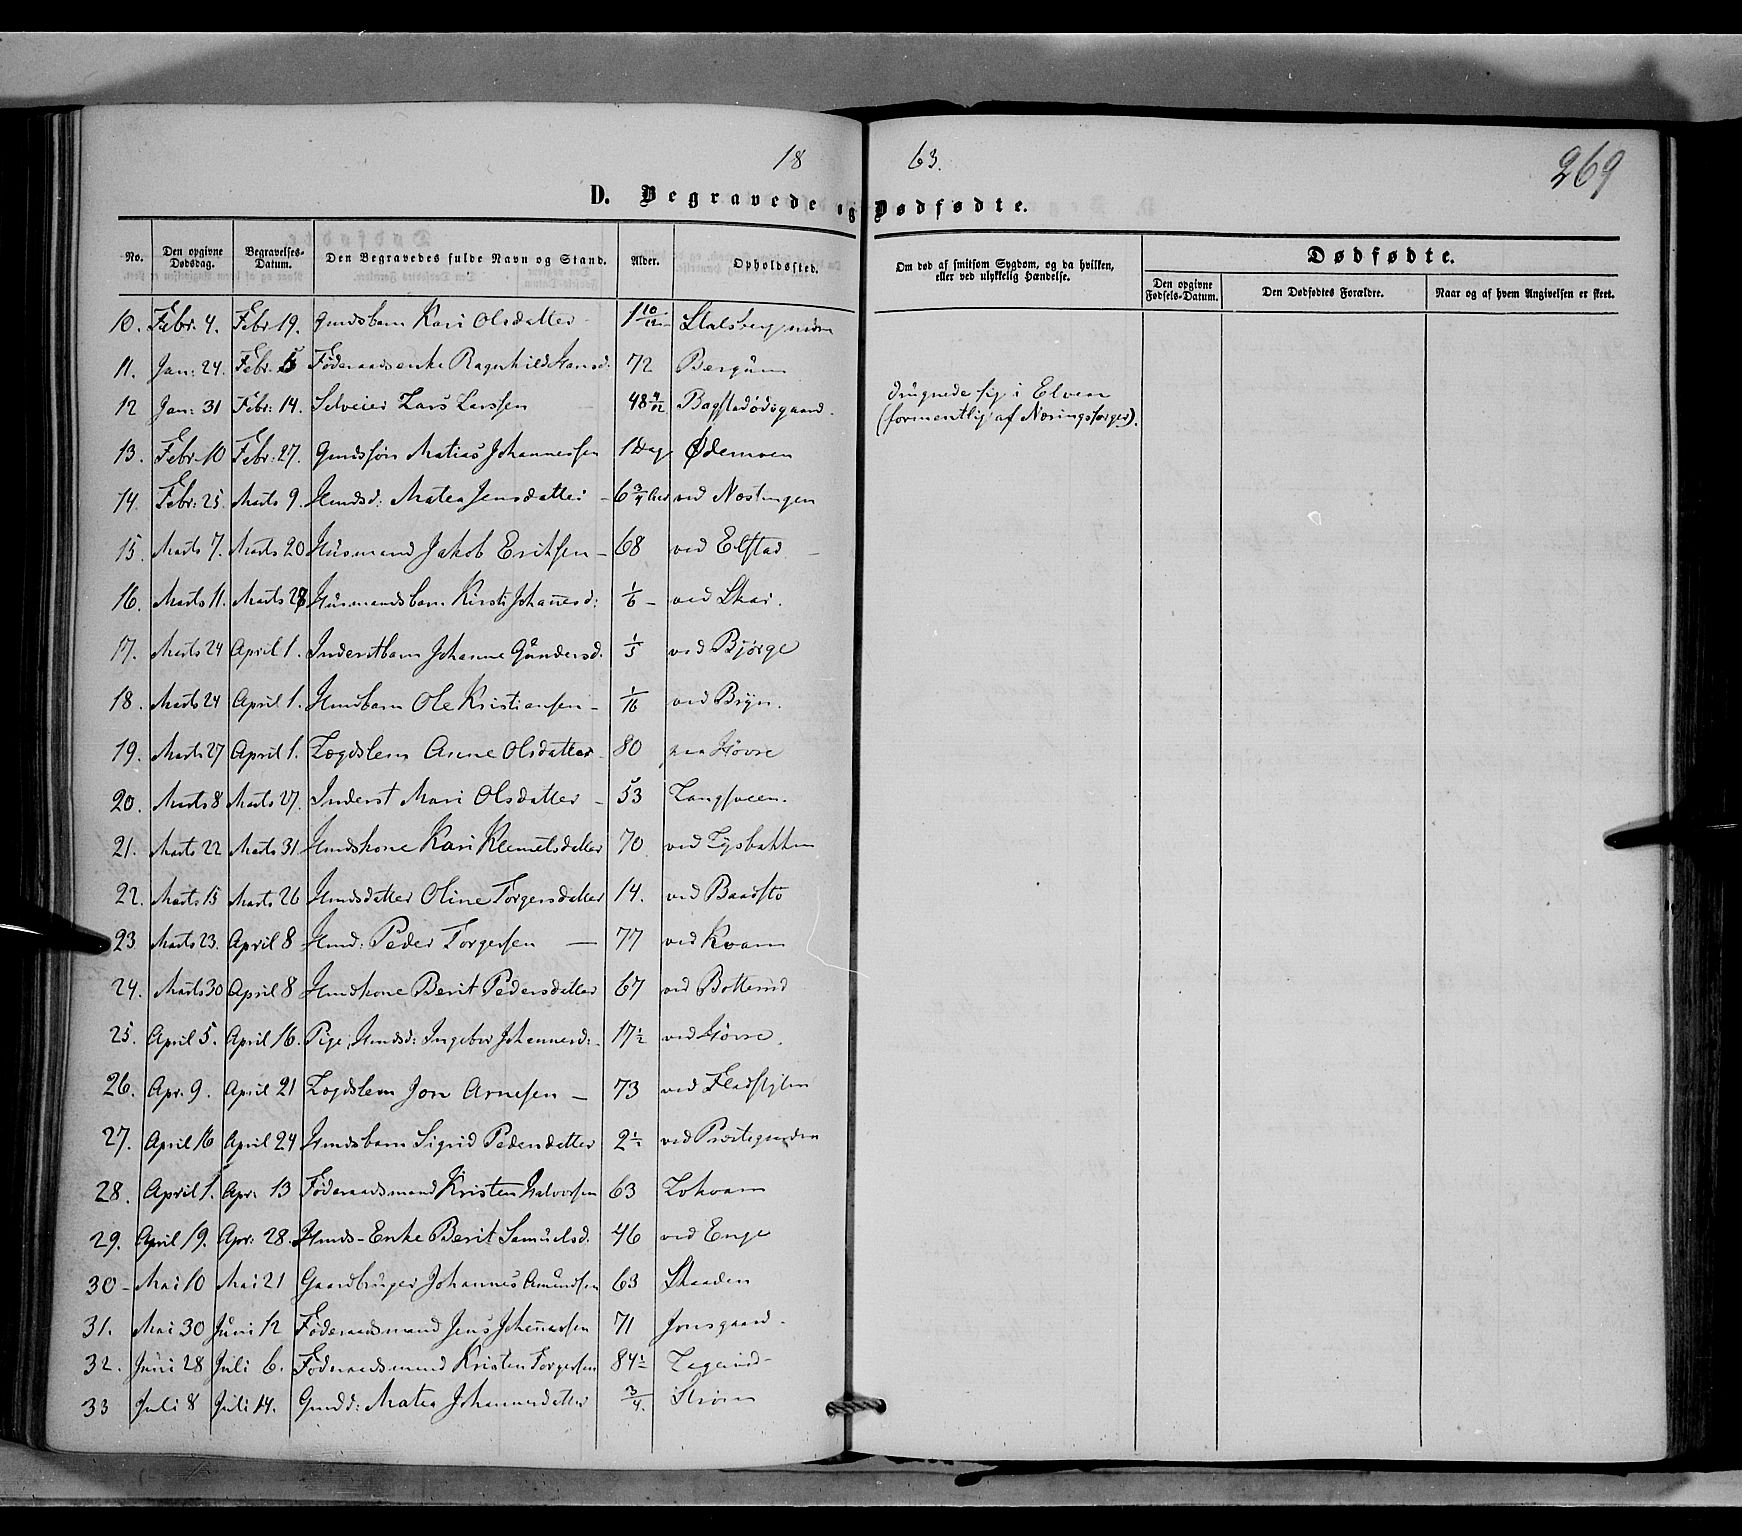 18 63.
269
D. Begravede og Dødfødte.
No. Den opgivne Dødsdag. Begravelses-Datum. Den Begravedes fulde Navn og Stand. Alder. Opholdssted. Om død af smitsom Sygdom, og da hvilken, eller ved ulykkelig Hændelse. Dødfødte.
Den opgivne Fødsels-Datum. Den Dødfødtes Forældre. Naar og af hvem Angivelsen er skeet.
10. Febr. 4. Febr. 19. Gmdsbarn Kari Olsdatter 1 10/12 Stalsberg nedre
11. Jan: 24. Febr. 5 Føderaadsenke Ragnhild Hansd: 72 Bergum
12 Jan: 31 Febr: 14. Selveier Lars Larssen 48 4/12 Bagstadødegaard. drugnede sig i Elven
(formentlig af Næringssorger).
13. Febr. 10 Febr: 27. Gmdssøn Matias Johannessen 1 Dag Ødemoen
14. Febr: 25. Marts 9. Hmdsd: Matea Jensdatter 6 3/4 ved Nostingen
15. Marts 7. Marts 20 Husmand Jakob Eriksen 68 ved Elstad
16. Marts 11. Marts 28 Husmandsbarn Kirsti Johanesd: 1/6 ved Skar.
17. Marts 24 April 1. Inderstbarn Johanne Gundersd. 1/3 ved Bjørge
18. Marts 24 April 1. Hmdbarn Ole Kristiansen 1/16 ved Bryn.
19. Marts 27 April 1. Lægdslem Anne Olsdatter 80 paa Høvre
20. Marts 8 Marts 27. Inderst Mari Olsdatter 53 Langsveen.
21. Marts 22 Marts 31 Hmdskone Kari Klemetsdatter 70. ved Lysbakken
22. Marts 15 Marts 26 Hmdsdatter Oline Torgersdatter 14. ved Baadstø
23 Marts 23. April 8 Hmd: Peder Torgersen 77 ved Kvam
24. Marts 30 April 8 Hmdkone Berit Pedersdatter 67 ved Botterud
25. April 5. April 16. Pige, Hmdsd: Ingebor Johannesd: 17 1/2 ved Høvre.
26. Apr. 9. April 21 Lægdslem Jon Arnesen 73 ved Fladstylen
27. April 16 April 24 Hmdsbarn Sigrid Pedersdatter 2 1/2 ved Præstegaarden
28. April 1. Apr. 13 Føderaadsmand Kristen Halvorsen 63 Lokvam
29. April 19. Apr: 28. Hmds-Enke Berit Samuelsd. 46 ved Enge
30 Mai 10 Mai 21 Gaardbruger Johannes Amundsen 63 Skaaden
31. Mai 30 Juni 12 Føderaadsmand Jens Johannessen 71 Jonsgaard.
32. Juni 28 Juli 6. Føderaadsmand Kristen Torgersen 84 1/2
33 Juli 8 Juli 14. Gmdd: Matea Johannesdatter 3/4. Strøm